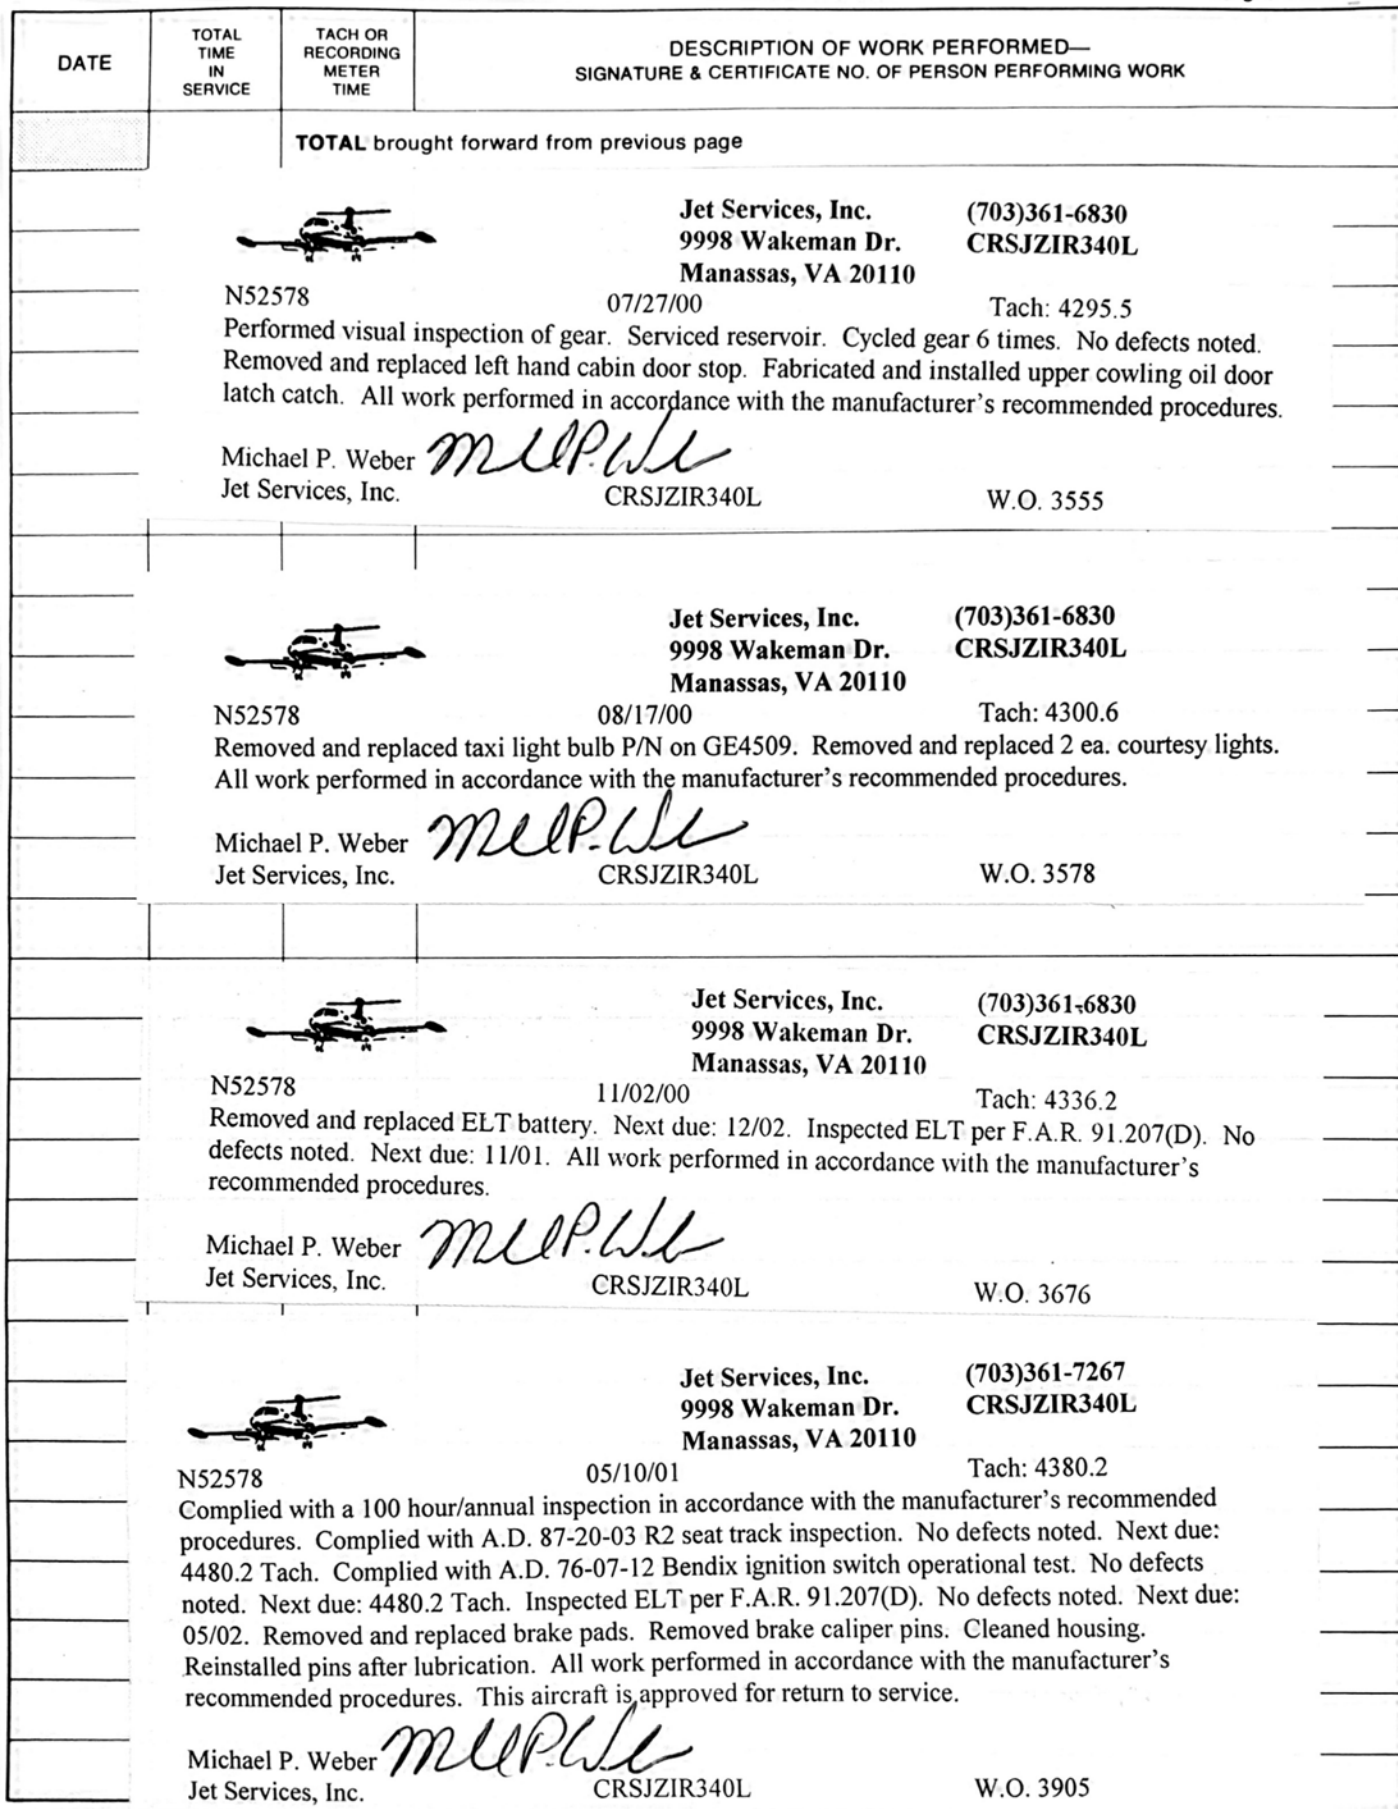 DATE
TOTAL
TIME
IN
SERVICE
TACH OR
RECORDING
METER
TIME
DESCRIPTION OF WORK PERFORMED—
SIGNATURE & CERTIFICATE NO. OF PERSON PERFORMING WORK
TOTAL brought forward from previous page
Jet Services, Inc. (703)361-6830
9998 Wakeman Dr. CRSJZIR340L
Manassas, VA 20110
N52578 07/27/00 Tach: 4295.5
Performed visual inspection of gear. Serviced reservoir. Cycled gear 6 times. No defects noted.
Removed and replaced left hand cabin door stop. Fabricated and installed upper cowling oil door
latch catch. All work performed in accordance with the manufacturer's recommended procedures.
Michael P. Weber
Jet Services, Inc. CRSJZIR340L W.O. 3555
Jet Services, Inc. (703)361-6830
9998 Wakeman Dr. CRSJZIR340L
Manassas, VA 20110
N52578 08/17/00 Tach: 4300.6
Removed and replaced taxi light bulb P/N on GE4509. Removed and replaced 2 ea. courtesy lights.
All work performed in accordance with the manufacturer's recommended procedures.
Michael P. Weber
Jet Services, Inc. CRSJZIR340L W.O. 3578
Jet Services, Inc. (703)361-6830
9998 Wakeman Dr. CRSJZIR340L
Manassas, VA 20110
N52578 11/02/00 Tach: 4336.2
Removed and replaced ELT battery. Next due: 12/02. Inspected ELT per F.A.R. 91.207(D). No
defects noted. Next due: 11/01. All work performed in accordance with the manufacturer's
recommended procedures.
Michael P. Weber
Jet Services, Inc. CRSJZIR340L W.O. 3676
Jet Services, Inc. (703)361-7267
9998 Wakeman Dr. CRSJZIR340L
Manassas, VA 20110
N52578 05/10/01 Tach: 4380.2
Complied with a 100 hour/annual inspection in accordance with the manufacturer's recommended
procedures. Complied with A.D. 87-20-03 R2 seat track inspection. No defects noted. Next due:
4480.2 Tach. Complied with A.D. 76-07-12 Bendix ignition switch operational test. No defects
noted. Next due: 4480.2 Tach. Inspected ELT per F.A.R. 91.207(D). No defects noted. Next due:
05/02. Removed and replaced brake pads. Removed brake caliper pins. Cleaned housing.
Reinstalled pins after lubrication. All work performed in accordance with the manufacturer's
recommended procedures. This aircraft is approved for return to service.
Michael P. Weber
Jet Services, Inc. CRSJZIR340L W.O. 3905